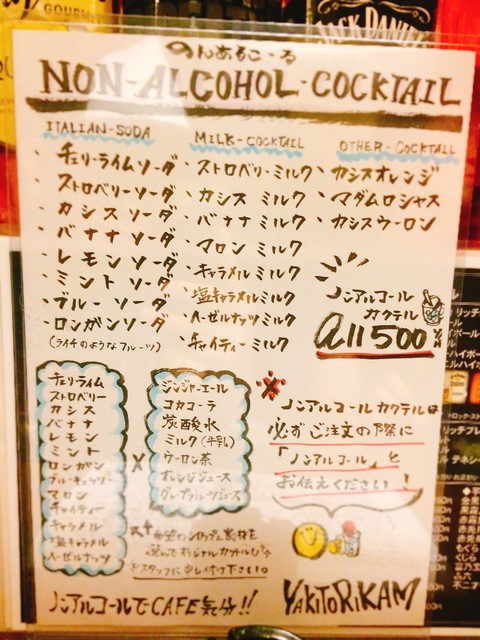 GOURM
JACK DANIEL
のんあるこーる
NON-ALCOHOL-COCKTAIL
ITALIAN-SODA
・チェリーライムソーダ
・ストロベリーソーダ
・カシスソーダ
・バナナソーダ
・レモンソーダ
・ミントソーダ
・ブルーソーダ
・ロンガンソーダ
(ライチのようなフルーツ)
MILK-COCKTAIL
・ストロベリーミルク
・カシスミルク
・バナナミルク
・マロンミルク
・キャラメルミルク
・塩キャラメルミルク
・ヘーゼルナッツミルク
・チャイティーミルク
OTHER-COCKTAIL
・カシスオレンジ
・マダムロシャス
・カシスウーロン
ノンアルコール
カクテル
all 500
チェリーライム
ストロベリー
カシス
バナナ
レモン
ミント
ロンガン
ブルーキュラソー
マロン
チャイティー
キャラメル
塩キャラメル
ヘーゼルナッツ
×
ジンジャーエール
コカコーラ
炭酸水
ミルク(牛乳)
ウーロン茶
オレンジジュース
グレープフルーツジュース
※ノンアルコールカクテルは
必ずご注文の際に
「ノンアルコール」と
お伝えください!
希望のシロップと割材を
選んでオリジナルカクテルも♪
スタッフに申し付け下さい。
ノンアルコールでCAFE気分!!
YAKITORIKAM